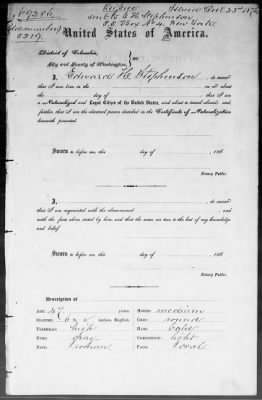 Issued Oct 25th 187
sent to E H Stephenson
P.O. Box No 4. New York
United States of America.
District of Columbia,
City and County of Washington,
ss:
I, Edward H. Stephenson, do swear
that I was born in the on or about
the day of ; that I am
a Naturalized and Loyal Citizen of the United States, and about to travel abroad; and
further, that I am the identical person described in the Certificate of Naturalization
herewith presented.
Sworn to before me, this day of , 186
Notary Public.
I, , do swear
that I am acquainted with the above-named and with
the facts above stated by him, and that the same are true, to the best of my knowledge
and belief.
Sworn to before me, this day of , 186
Notary Public.
Description of
Age: 47 years. Mouth: medium
Stature: inches, English. Chin: round
Forehead: high Hair:
Eyes: gray Complexion: light
Nose: roman Face: oval